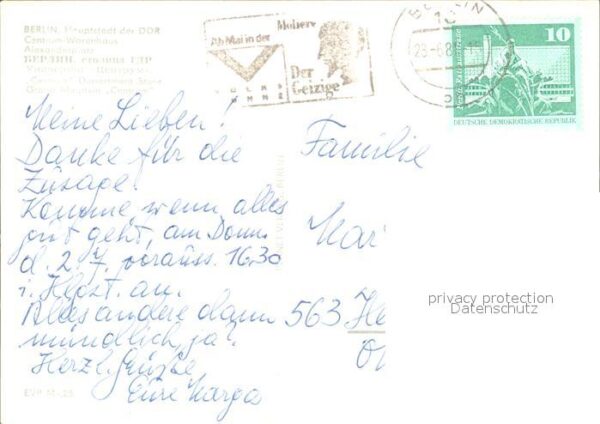 BERLIN, Hauptstadt der DDR
Centrum-Warenhaus
Alexanderplatz
БЕРЛИН, столица ГДР
Moliere
Ab Mai in der
VOLKS
BÜHNE
Der
Geizige
BERLIN
10
DEUTSCHE DEMOKRATISCHE REPUBLIK
Meine Lieben!
Danke für die
Zusage.
Komme, wenn alles
gut geht, am Donn.
d. 2. 7. vorauss. 16.30
i. Hgst. an.
Alles andere dann
mündlich, ja?
Herzl. Grüße
Eure Marga
EVP M -,25
Familie
Kar
563 He
privacy protection
Datenschutz